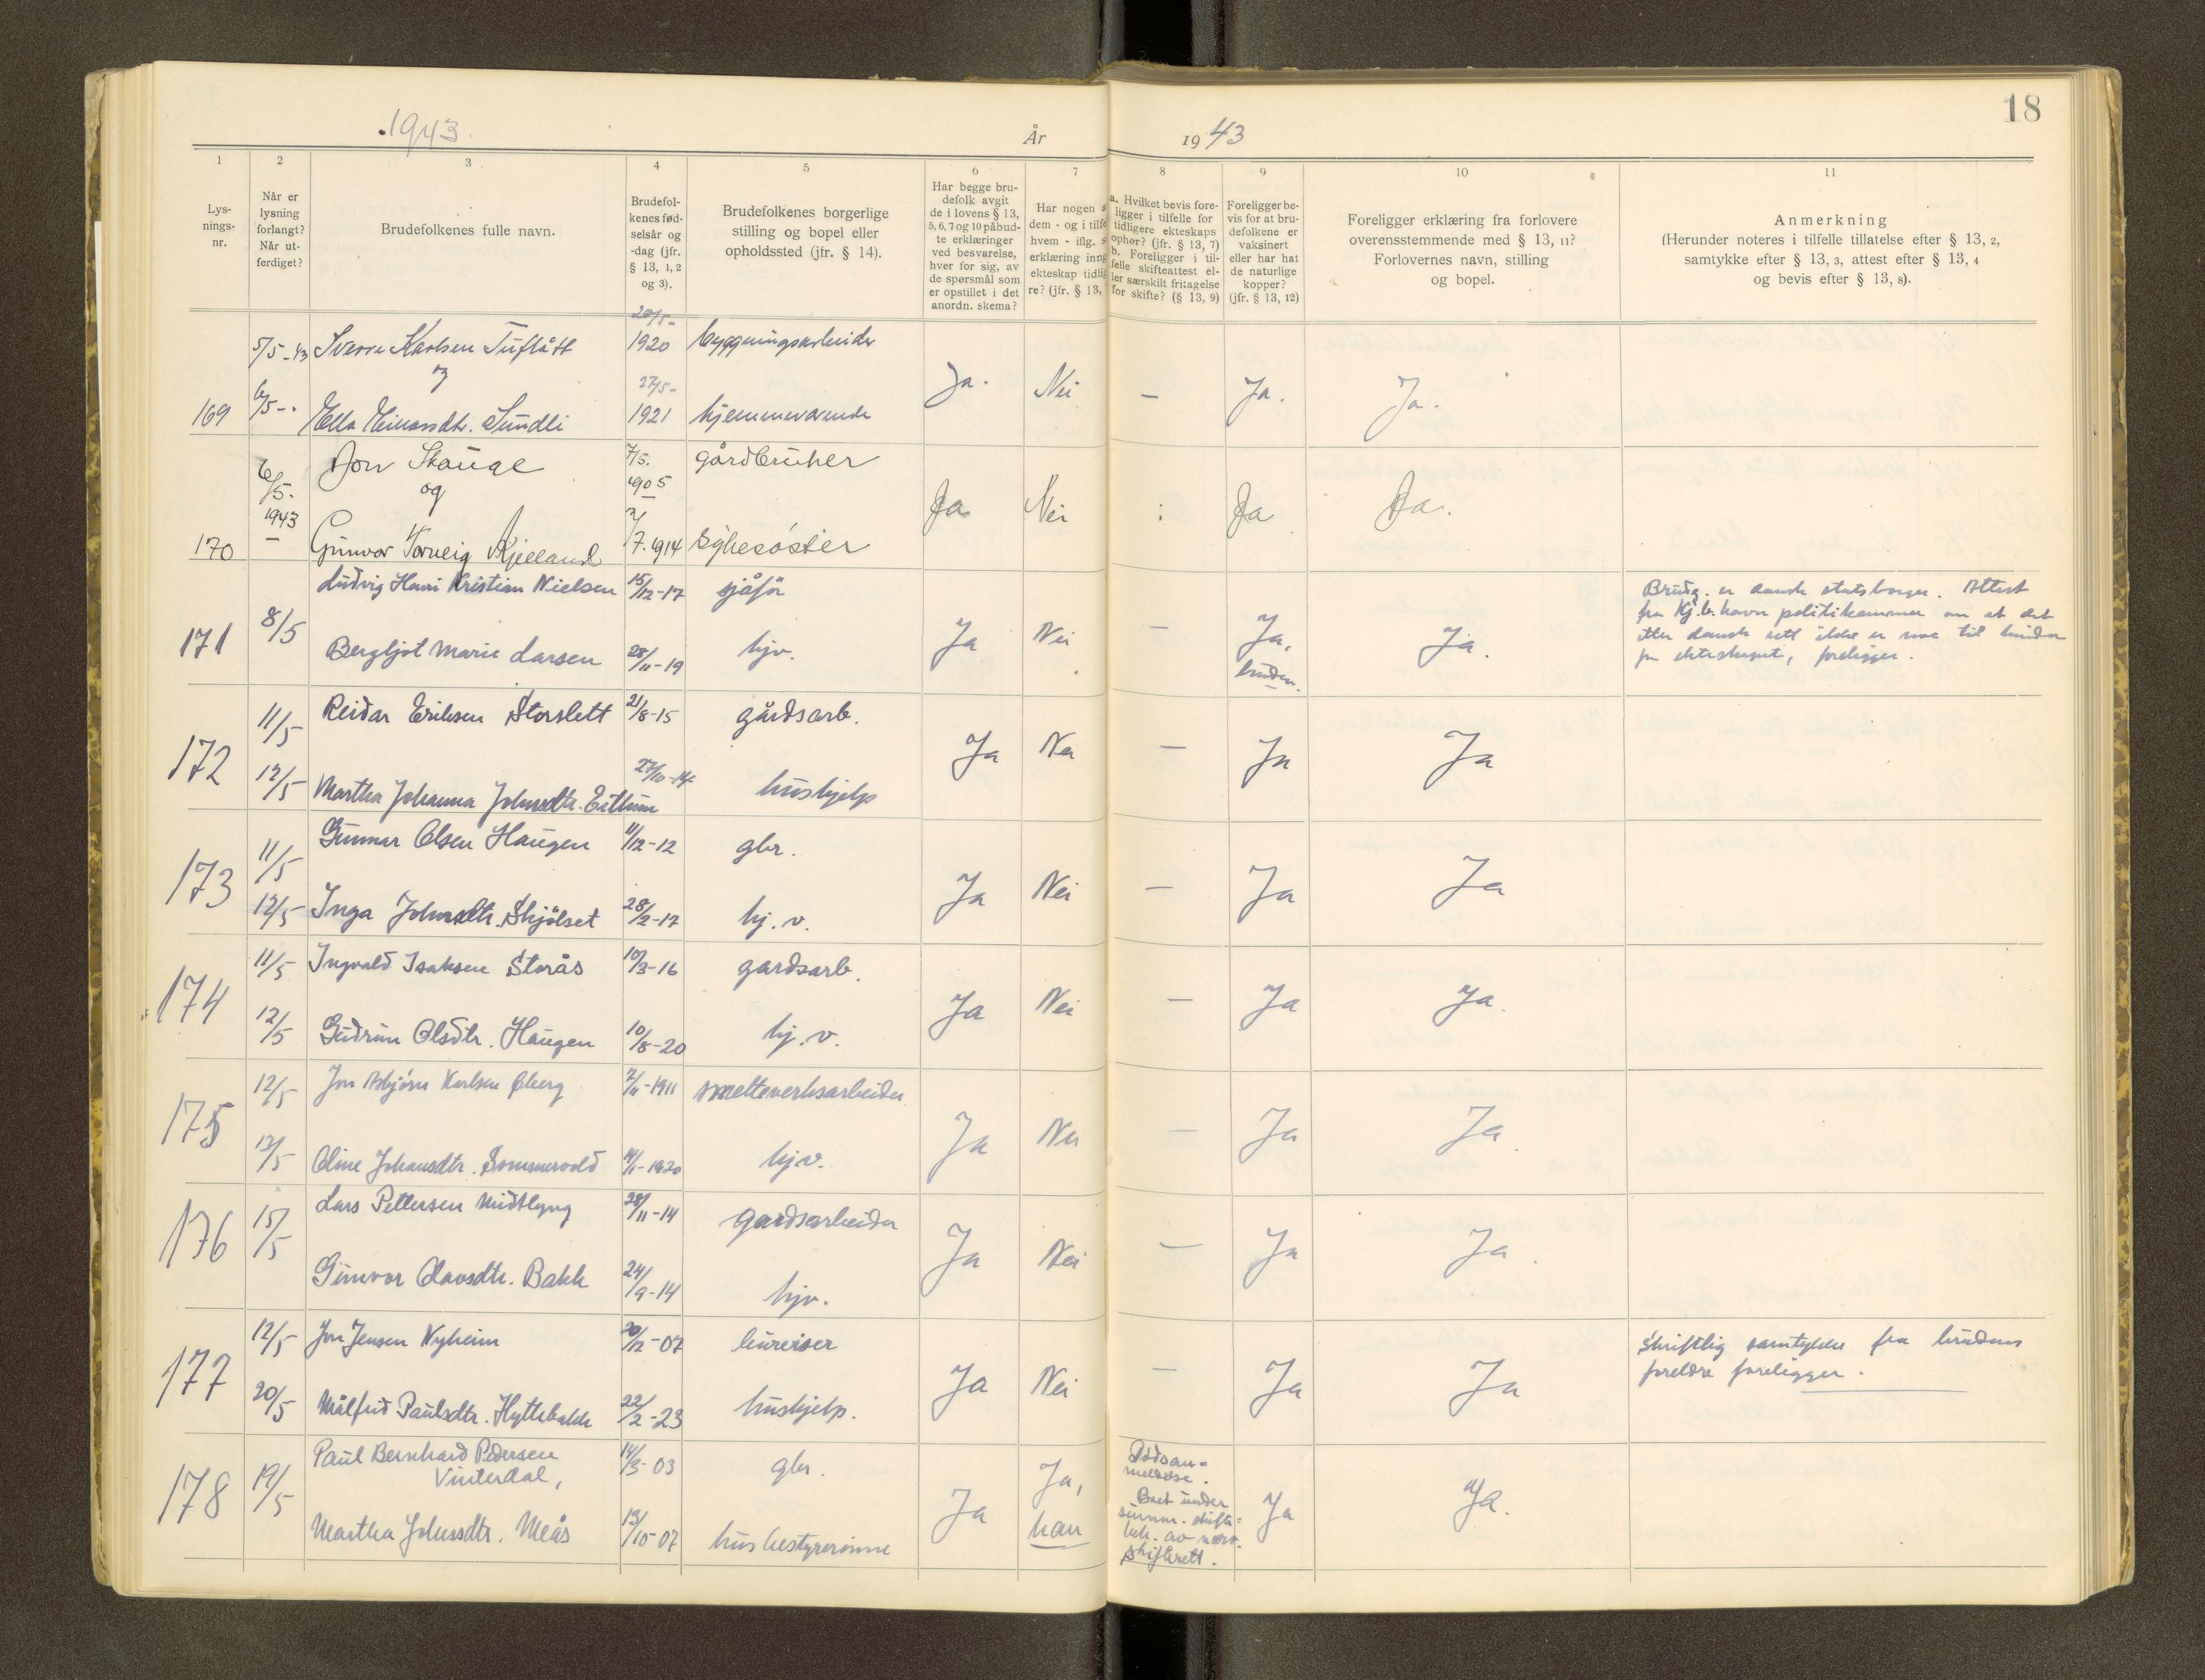 18
1943
År
1943
1
2
3
4
5
6
7
8
9
10
11
Lys-
nings-
nr.
Når er
lysning
forlangt?
Når ut-
ferdiget?
Brudefolkenes fulle navn.
Brudefol-
kenes fød-
selsår og
-dag (jfr.
§ 13, 1, 2
og 3).
Brudefolkenes borgerlige
stilling og bopel eller
opholdssted (jfr. § 14).
Har begge bru-
defolk avgit
de i lovens § 13,
5, 6, 7 og 10 påbud-
te erklæringer
ved besvarelse,
hver for sig, av
de spørsmål som
er opstillet i det
anordn. skema?
Har nogen a
dem - og i tilfe
hvem - iflg. s
erklæring inng
ekteskap tidlig
re? (jfr. § 13,
a. Hvilket bevis fore-
ligger i tilfelle for
tidligere ekteskaps
ophør? (jfr. § 13, 7)
b. Foreligger i til-
felle skifteattest el-
ler særskilt fritagelse
for skifte? (§ 13, 9)
Foreligger be-
vis for at bru-
defolkene er
vaksinert
eller har hat
de naturlige
kopper?
(jfr. § 13, 12)
Foreligger erklæring fra forlovere
overensstemmende med § 13, 11?
Forlovernes navn, stilling
og bopel.
Anmerkning
(Herunder noteres i tilfelle tillatelse efter § 13, 2,
samtykke efter § 13, 3, attest efter § 13, 4
og bevis efter § 13, 8).
5/5-43 Sverre Karlsen Tuflått 20/5- 1920 bygningsarbeider
og
169 6/5-. Ella Einarsdtr. Sundli 27/5- 1921 hjemmeværende Ja. Nei — Ja. Ja.
6/5. 1943 Jon Skauge 7/5. 1905 gårdbruker
og
170 Gunvor Torveig Kjelland 7/7.1914 sykesøster Ja Nei : Ja Ja.
Ludvig Henri Kristian Nielsen 15/12-17 sjåfør
171 8/5 Bergljot Marie Larsen 28/11-19 hjv. Ja Nei — Ja, bruden. Ja.
Brudg. er dansk statsborger. Attest
fra Kj.b.havn politikammer om at det
etter dansk rett ikke er noe til hinder
for ekteskapet, foreligger.
11/5 Reidar Eriksen Storslett 21/8-15 gårdsarb.
172 12/5 Martha Johanna Johnsdtr. Eithun 27/10-14 hushjelp Ja Nei — Ja Ja
11/5 Gunnar Olsen Haugen 11/12-12 gbr.
173 12/5 Inga Johnsdtr. Skjølset 28/2-17 hj.v. Ja Nei — Ja Ja
11/5 Ingvald Isaksen Storås 10/3-16 gardsarb.
174 12/5 Gudrun Olsdtr. Haugen 10/8-20 hj.v. Ja Nei — Ja Ja.
12/5 Jon Asbjørn Karlsen Øberg 2/11-1911 smelteverksarbeider
175 13/5 Oline Johansdtr. Sommervold 4/1-1920 hjv. Ja Nei — Ja Ja.
15/5 Lars Pettersen Midtlyng 28/11-14 gardsarbeider
176 Gunvor Olavsdtr. Bakk 24/9-14 hjv. Ja Nei — Ja Ja.
12/5 Jon Jensen Nyheim 20/12-07 bureiser
177 20/5 Målfrid Paulsdtr. Hyttebakk 22/2-23 hushjelp. Ja Nei — Ja Ja
Skriftlig samtykke fra brudens
foreldre foreligger.
Paul Bernhard Pedersen 14/3-03 gbr.
Vinterdal,
178 19/5 Martha Johnsdtr. Meås 13/10-07 husbestyrerinne Ja Ja, han
Dødsan-
meldelse.
Boet under
summ. skifte-
beh. av nærv.
skifterett.
Ja Ja.